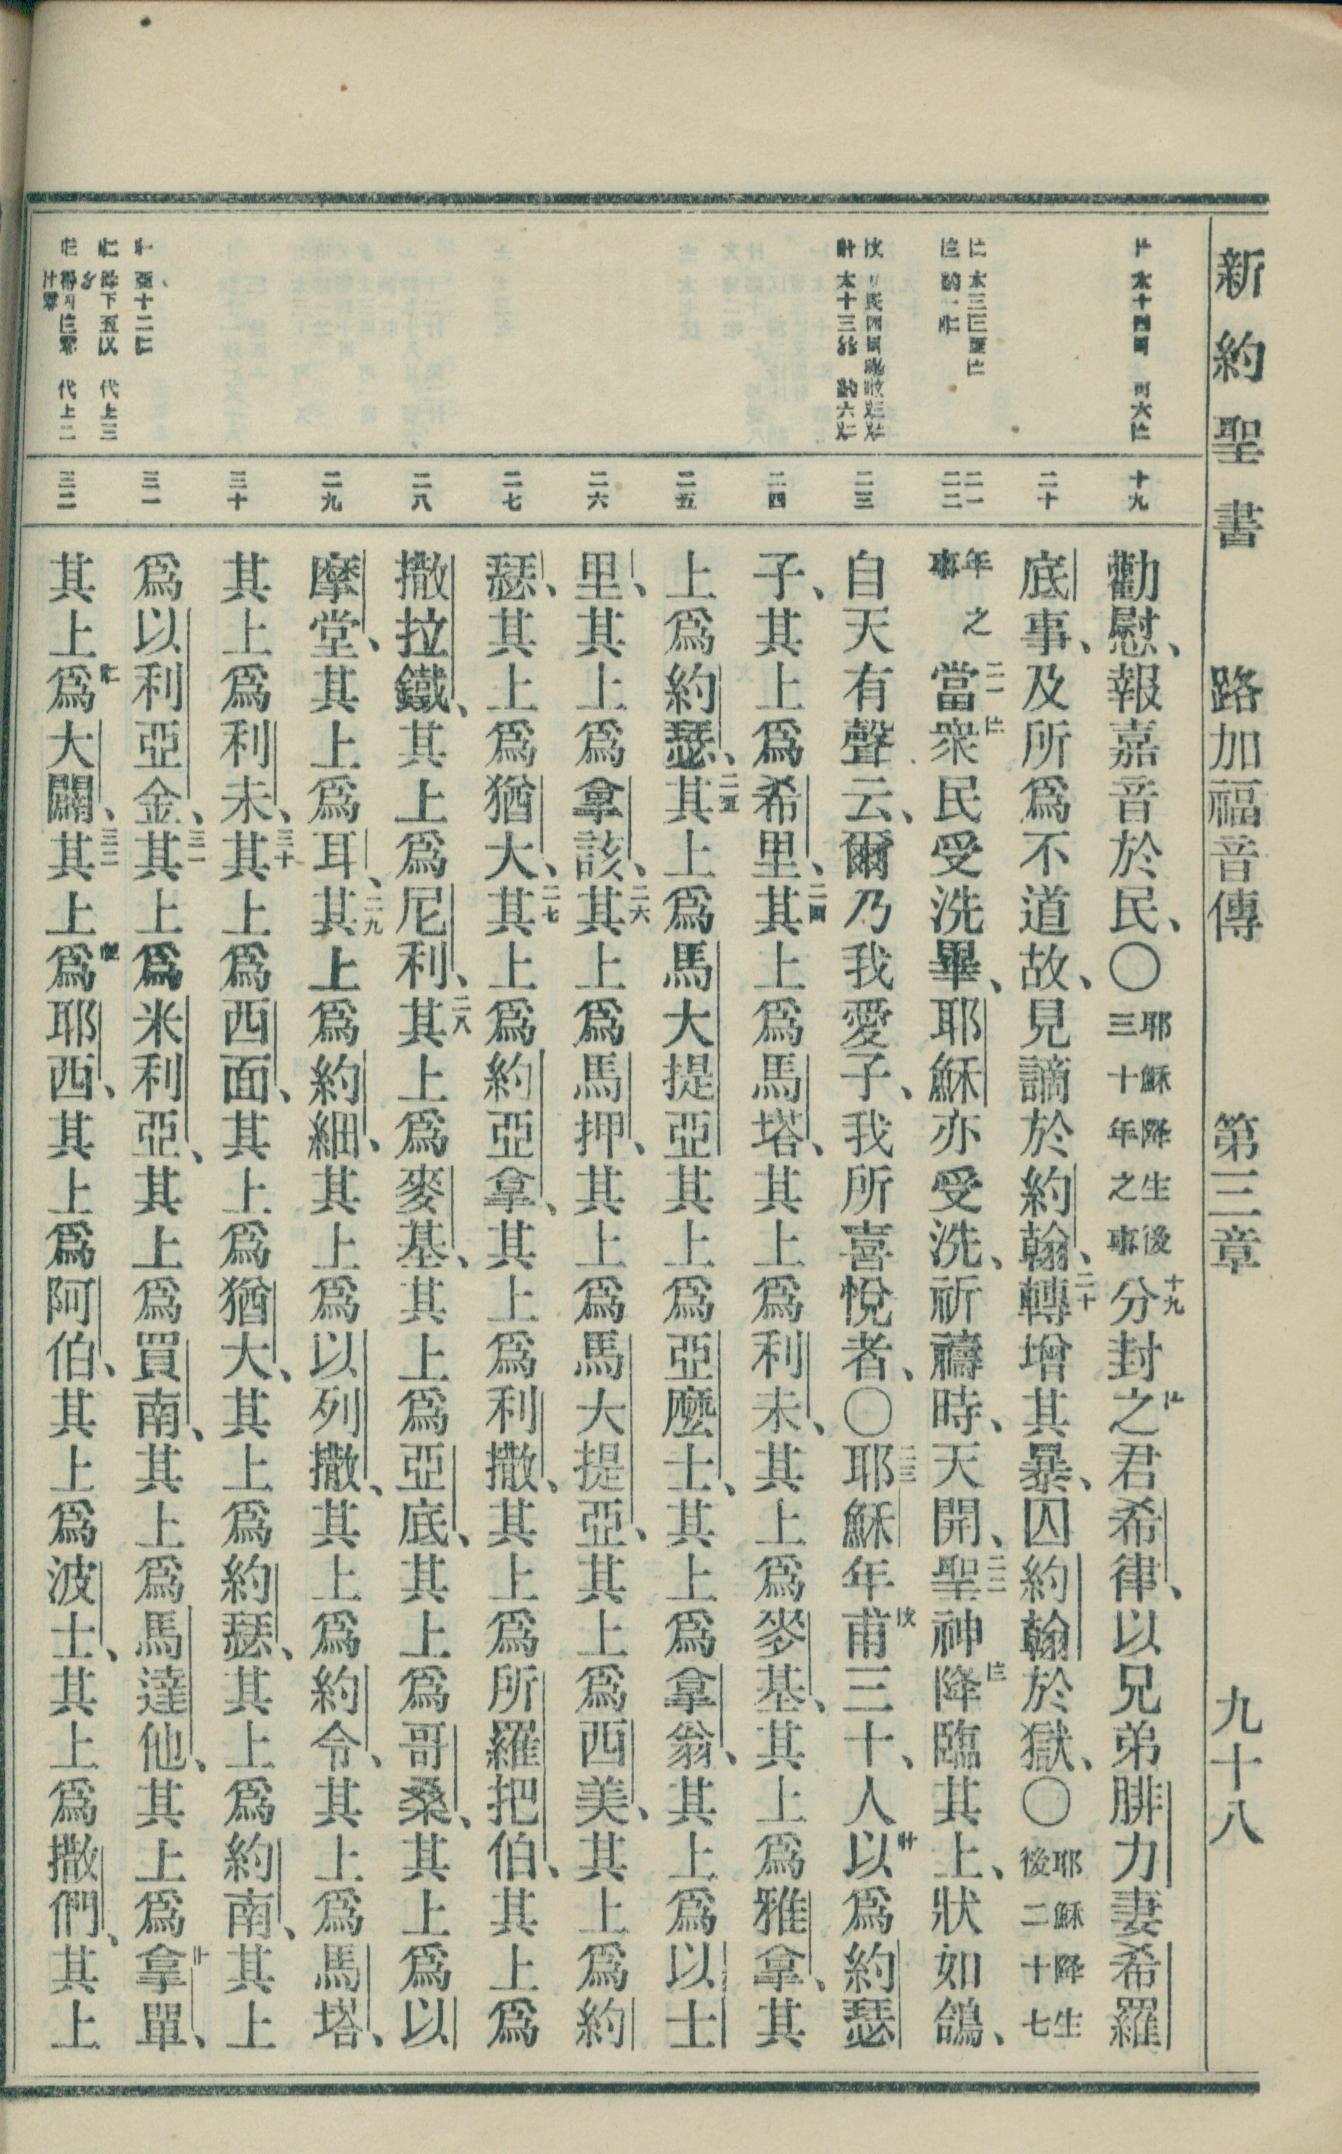 新約聖書 路加福音傳 第三章 九十八
十九
二十
二一
二二
二三
二四
二五
二六
二七
二八
二九
三十
三一
三二
勸慰、報嘉音於民、〇耶穌降生後三十年之事十九分封之君希律、以兄弟腓力妻希羅
底事、及所爲不道故、見謫於約翰、二十轉增其暴、囚約翰於獄、〇耶穌降生後二十七
年之事二一當衆民受洗畢、耶穌亦受洗、祈禱時、天開、二二聖神降臨其上、狀如鴿、
自天有聲云、爾乃我愛子、我所喜悅者、〇二三耶穌年甫三十、人以爲約瑟
子、其上爲希里、二四其上爲馬塔、其上爲利未、其上爲麥基、其上爲雅拿、其
上爲約瑟、二五其上爲馬大提亞其上爲亞麽士、其上爲拿翁、其上爲以士
里、其上爲拿該、二六其上爲馬押、其上爲馬大提亞、其上爲西美、其上爲約
瑟、其上爲猶大、二七其上爲約亞拿、其上爲利撒、其上爲所羅把伯、其上爲
撒拉鐵、其上爲尼利、二八其上爲麥基、其上爲亞底、其上爲哥桑、其上爲以
摩堂、其上爲耳、二九其上爲約細、其上爲以列撒、其上爲約令、其上爲馬塔、
其上爲利未、三十其上爲西面、其上爲猶大、其上爲約瑟、其上爲約南、其上
爲以利亞金、三一其上爲米利亞、其上爲買南、其上爲馬達他、其上爲拿單、
其上爲大闢、三二其上爲耶西、其上爲阿伯、其上爲波士、其上爲撒們、其上